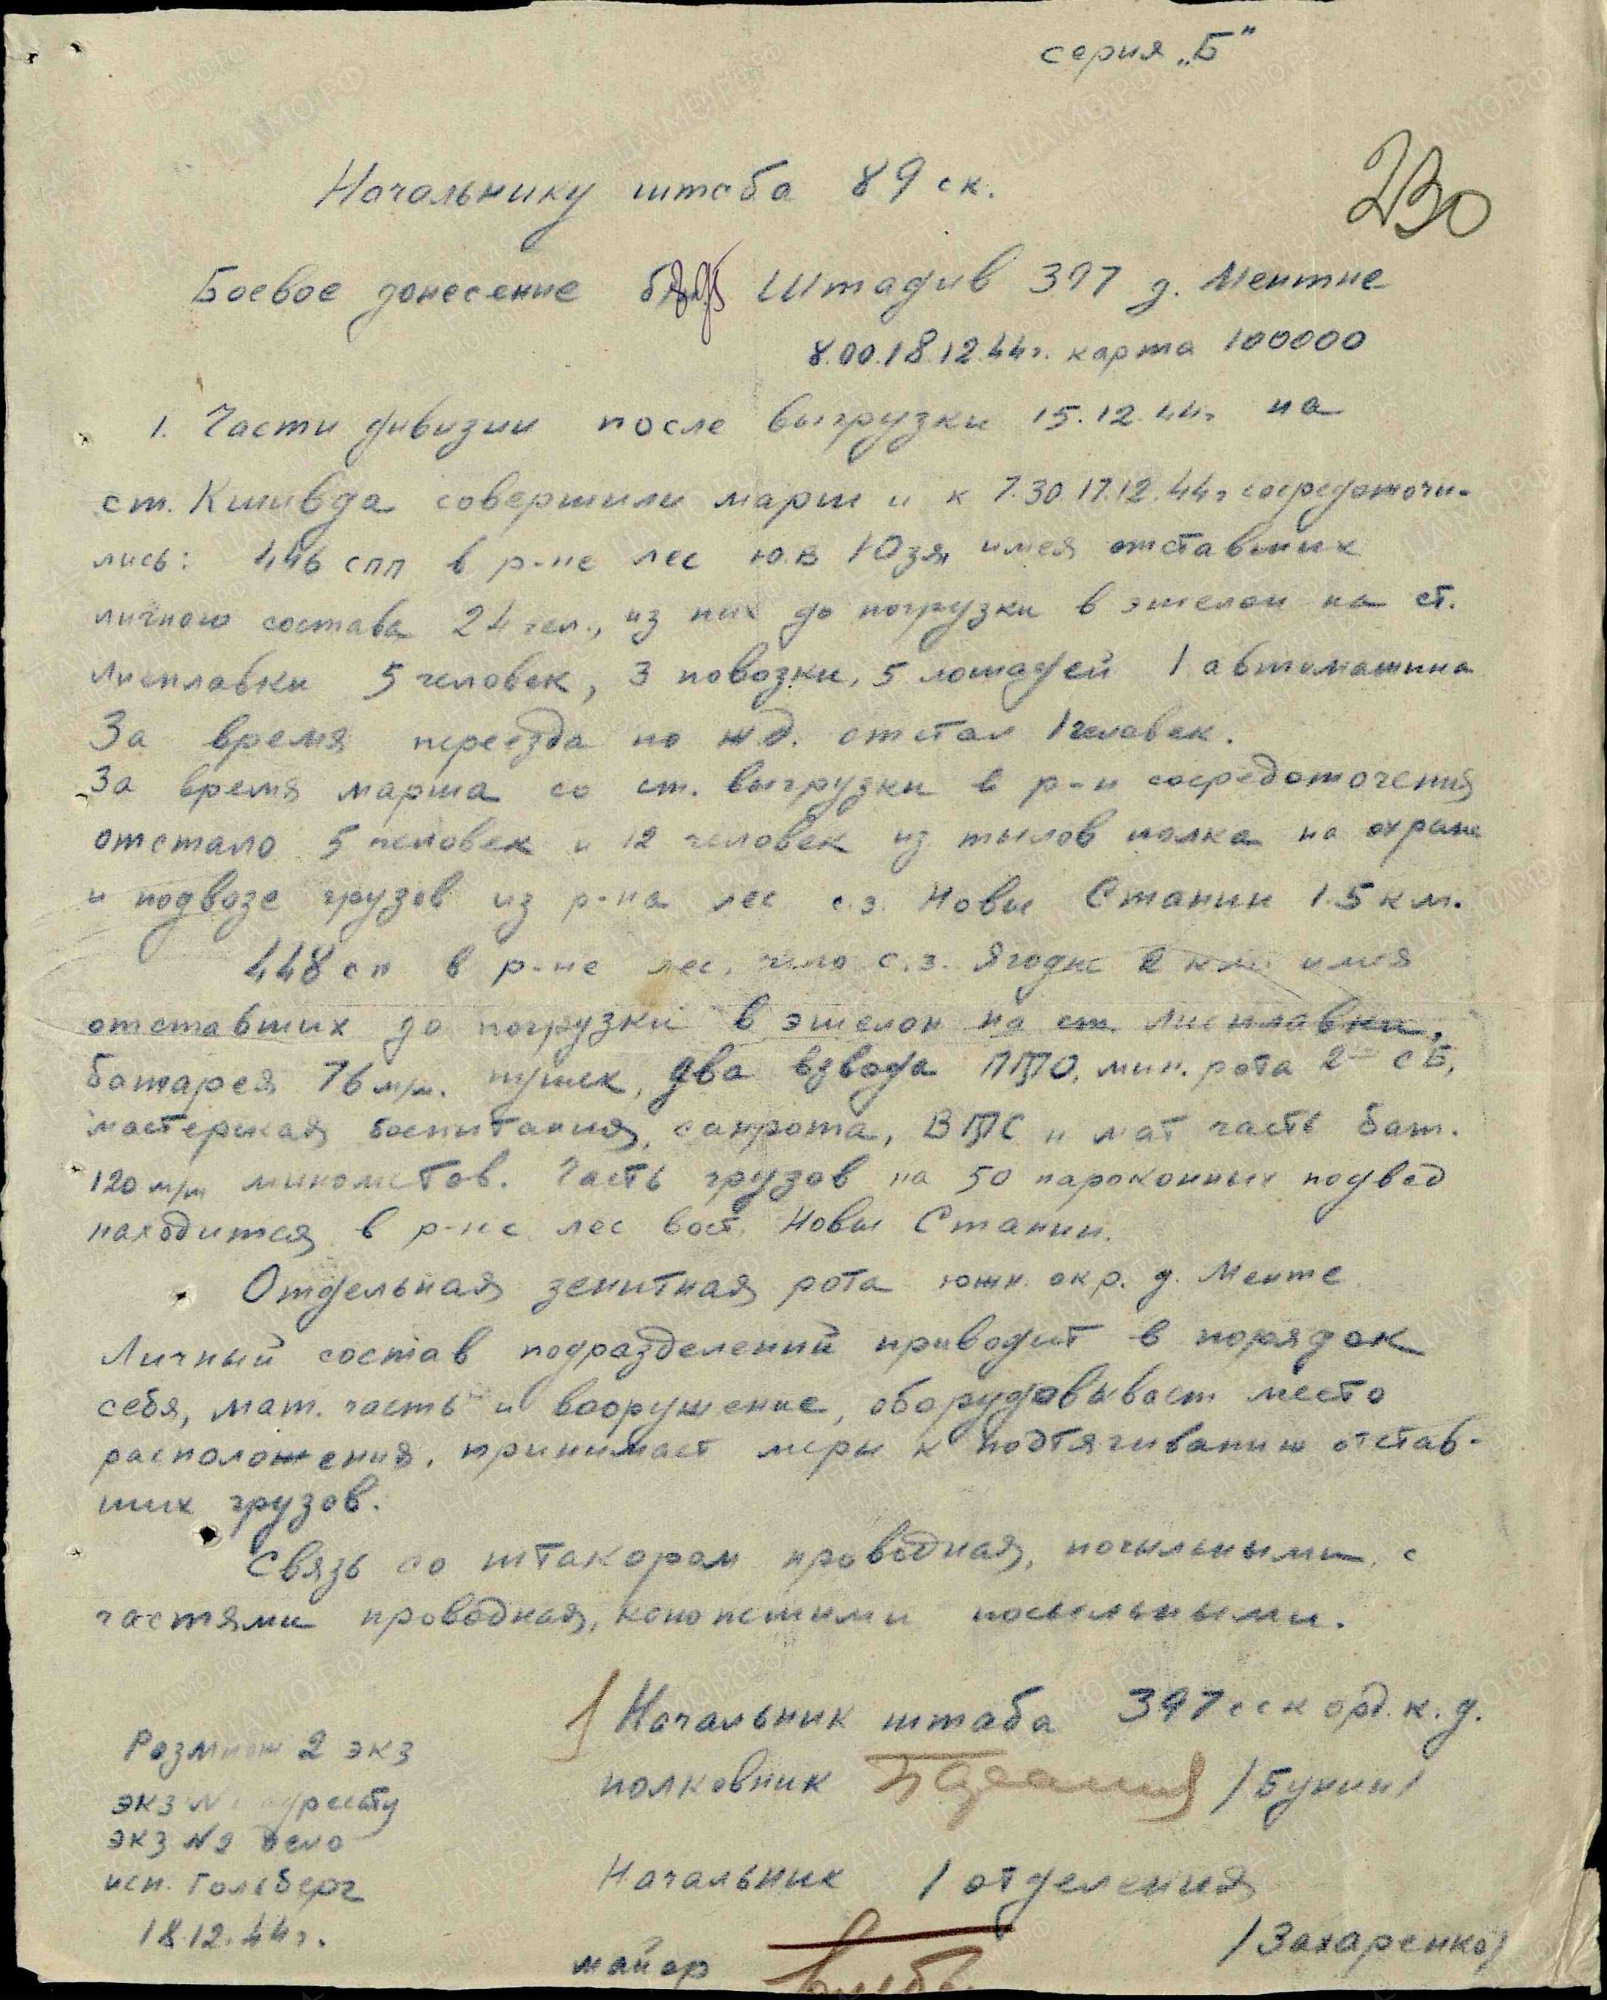 серия „Б"
230
Начальнику штаба 89 ск.
Боевое донесение Штадив 397 д. Ментне
8.00.18.12.44г. карта 100000
1. Части дивизии после выгрузки 15.12.44г на
ст. Кшивда совершили марш и к 7.30.17.12.44г сосредоточи-
лись: 446 спп в р-не лес ю.в Юзя, имея отставших
личного состава 24 чел., из них до погрузки в эшелон на ст.
Лисплавки 5 человек, 3 повозки, 5 лошадей 1 автомашина
За время переезда по ж.д. отстал 1 человек.
За время марша со ст. выгрузки в р-н сосредоточения
отстало 5 человек и 12 человек из тылов полка на охране
и подвозе грузов из р-на лес с.з. Новы Станин 1.5 км.
448 сп в р-не лес, что с.з. Ягодне 2 км. имея
отставших до погрузки в эшелон на ст. Лисплавки,
батарея 76 м/м. пушек, два взвода ПТО, мин. рота 2 СБ,
мастерская боепитания, санрота, ВТС и мат часть бат.
120 м/м минометов. Часть грузов на 50 пароконных подвод
находится в р-не лес вост. Новы Станин.
Отдельная зенитная рота южн. окр. д. Менте
Личный состав подразделений приводит в порядок
себя, мат. часть и вооружение, оборудовывает место
расположения, принимает меры к подтягиванию отстав-
ших грузов.
Связь со штакором проводная, посыльными, с
частями проводная, конопешими посыльными.
Начальник штаба 397 сск орд. к. д.
полковник /Бунин/
Начальник 1 отделения
майор /Захаренко/
Размнож 2 экз
экз №1 адресату
экз №2 дело
исп. Гольберг
18.12.44г.